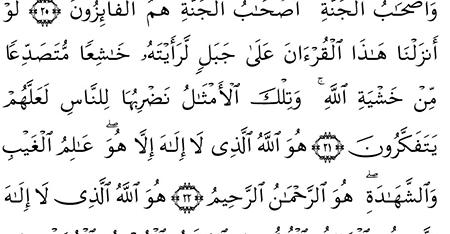 وَأَصْحَابُ ٱلْجَنَّةِ ۚ أَصْحَابُ ٱلْجَنَّةِ هُمُ ٱلْفَآئِزُونَ ﴿٢٠﴾ لَوْ
أَنزَلْنَا هَـٰذَا ٱلْقُرْءَانَ عَلَىٰ جَبَلٍ لَّرَأَيْتَهُۥ خَـٰشِعًا مُّتَصَدِّعًا
مِّنْ خَشْيَةِ ٱللَّهِ ۚ وَتِلْكَ ٱلْأَمْثَـٰلُ نَضْرِبُهَا لِلنَّاسِ لَعَلَّهُمْ
يَتَفَكَّرُونَ ﴿٢١﴾ هُوَ ٱللَّهُ ٱلَّذِى لَآ إِلَـٰهَ إِلَّا هُوَ ۖ عَـٰلِمُ ٱلْغَيْبِ
وَٱلشَّهَـٰدَةِ ۖ هُوَ ٱلرَّحْمَـٰنُ ٱلرَّحِيمُ ﴿٢٢﴾ هُوَ ٱللَّهُ ٱلَّذِى لَآ إِلَـٰهَ